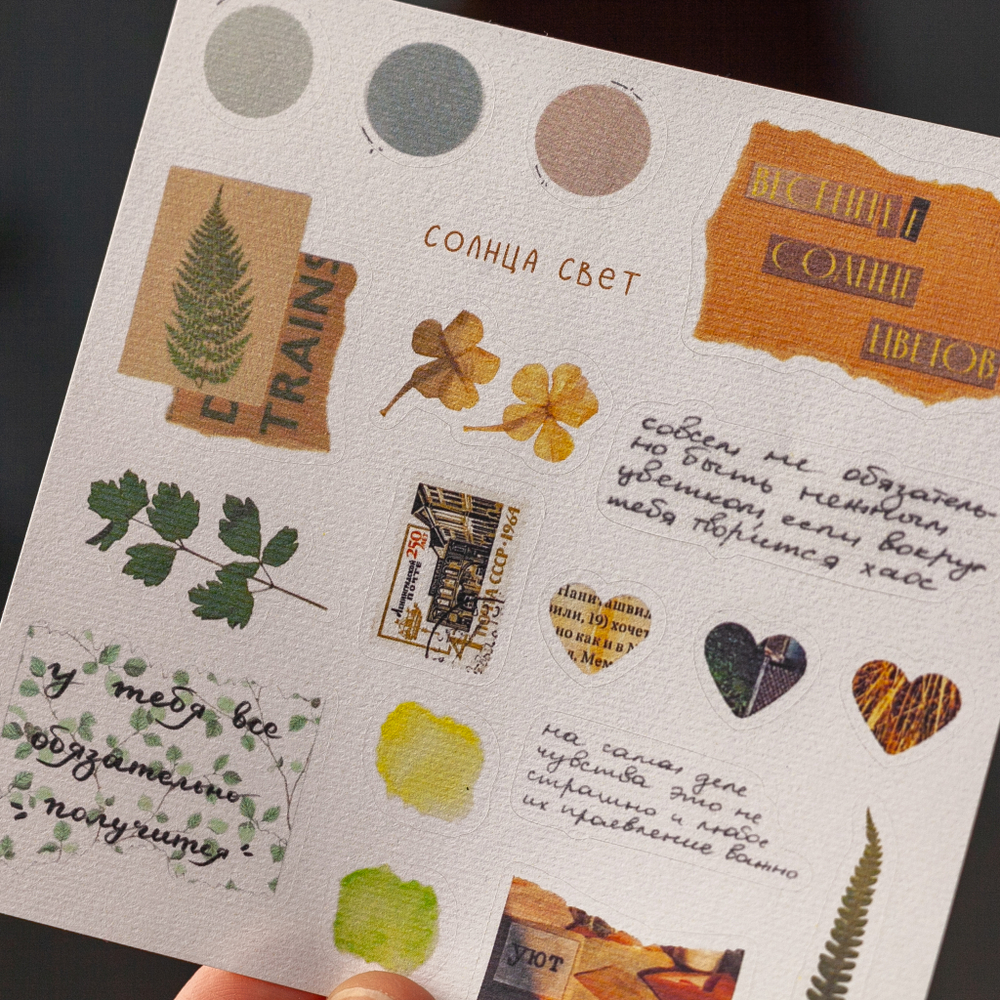 СОЛНЦА СВЕТ
СОЛНЦЕ
ЦВЕТОВ
TRAINS
совсем не обязатель-
но быть нежным
цветком, если вокруг
тебя творится хаос
Ленинградской
ПОЧТЕ
250
ЛЕТ
ПОЧТА СССР·1964
4
или, 19) хочет
но как и в
у тебя все
обязательно
получится
на самом деле
чувства это не
страшно и любое
их проявление важно
уют